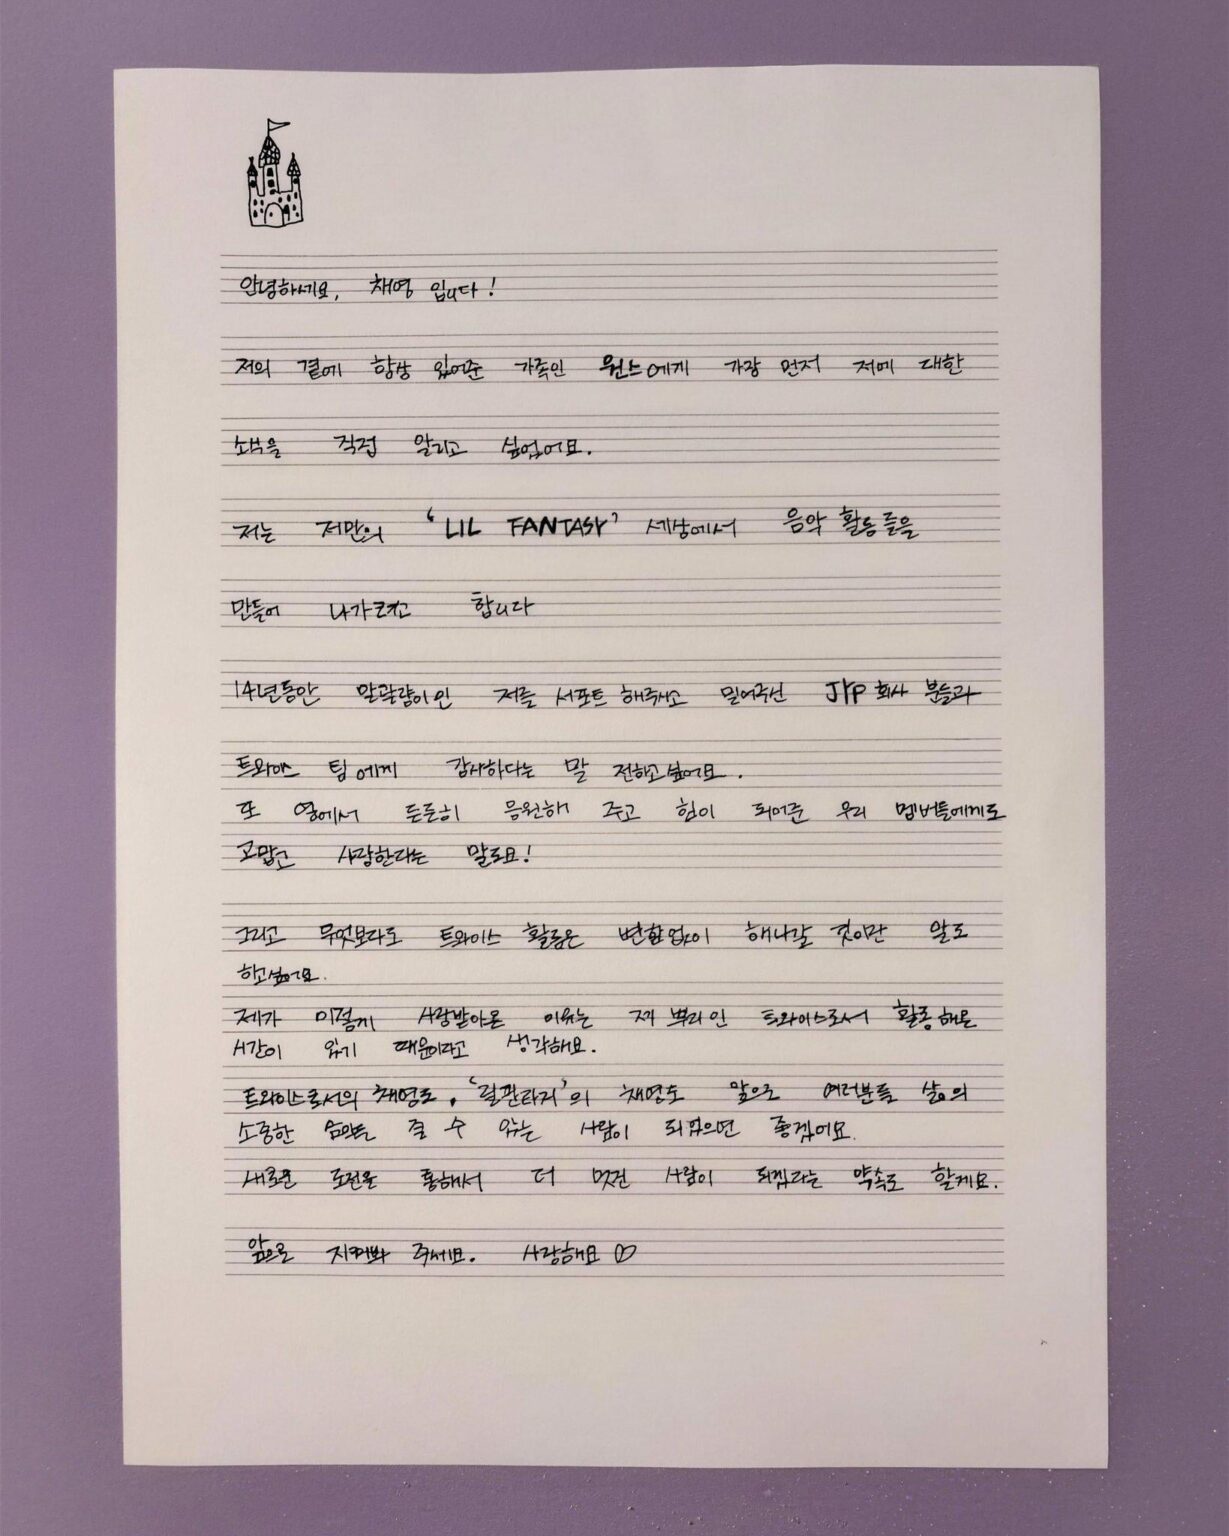 안녕하세요, 채영 입니다!
저의 곁에 항상 있어준 가족인 원스에게 가장 먼저 저에 대한
소식을 직접 알리고 싶었어요.
저는 저만의 'LIL FANTASY' 세상에서 음악 활동들을
만들어 나가려고 합니다
14년동안 말괄량이인 저를 서포트 해주시고 밀어주신 JYP 회사 분들과
트와이스 팀에게 감사하다는 말 전하고싶어요.
또 옆에서 든든히 응원해 주고 힘이 되어준 우리 멤버들에게도
고맙고 사랑한다는 말도요!
그리고 무엇보다도 트와이스 활동은 변함없이 해나갈 것이란 말도
하고싶어요.
제가 이렇게 사랑받아온 이유는 제 뿌리인 트와이스로서 활동해온
시간이 있기 때문이라고 생각해요.
트와이스로서의 채영도, '릴판타지'의 채영도 앞으로 여러분들 삶의
소중한 음악을 줄 수 있는 사람이 되었으면 좋겠어요.
새로운 도전을 통해서 더 멋진 사람이 되겠다는 약속도 할게요.
앞으로 지켜봐 주세요. 사랑해요 ♡